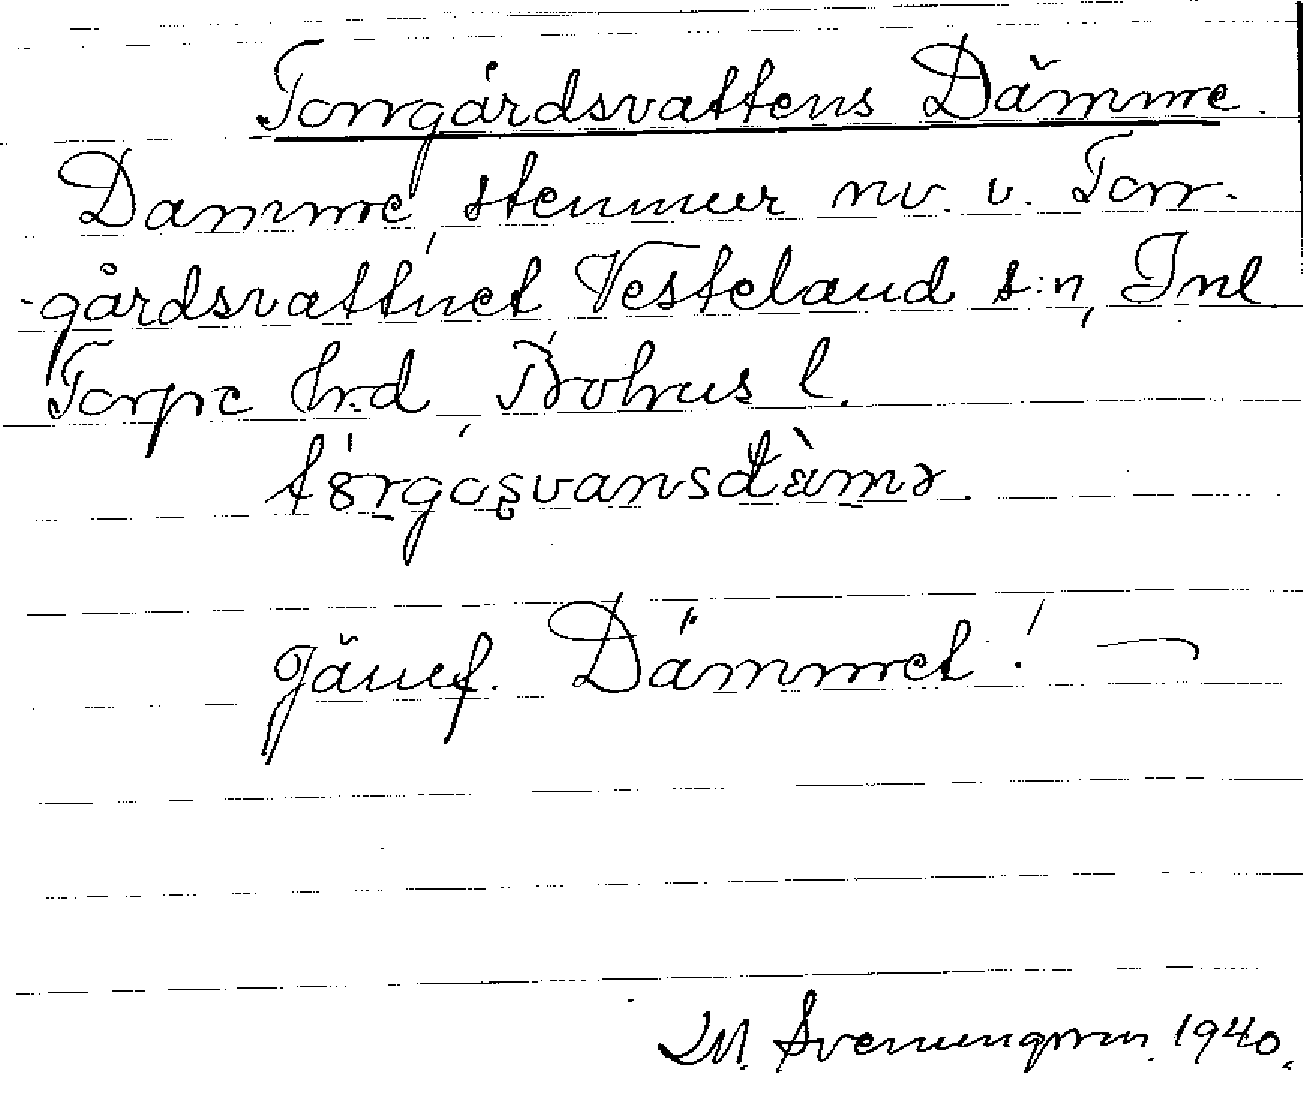 Torrgårdsvattens Dämme
Damme, stenmur nv. v. Torr-
-gårdsvattnet Vesteland s:n, Inl.
Torpe hrd, Bohus l.
Jämf. Dämmet!
M. Svenungsson 1940.